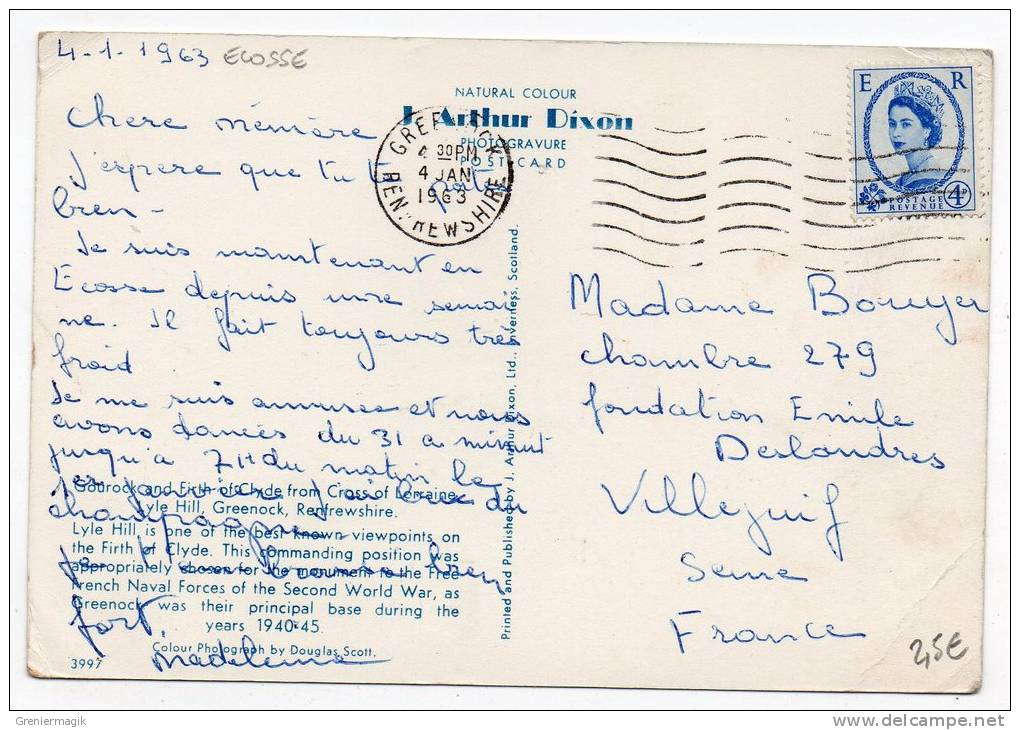 4-1-1963 ECOSSE
Chere mémère
J'espere que tu te portes
bien -
Je suis maintenant en
Ecosse depuis une semai
ne. Il fait toujours très
froid
Je me suis amusée et nous
avons dancés du 31 a minuit
jusqu'a 7H du matin le
1er janvier J'ai bu du
champagne
je t'embrasse bien
fort.
Madeleine
NATURAL COLOUR
J. Arthur Dixon
PHOTOGRAVURE
POSTCARD
GREENOCK
4 30PM
4 JAN
1963
RENFREWSHIRE
E R
POSTAGE
REVENUE
4D
Madame Bouyer
chambre 279
fondation Emile
Deslandres
Villejuif
Seine
France
Gourock and Firth of Clyde from Cross of Lorraine,
Lyle Hill, Greenock, Renfrewshire.
Lyle Hill is one of the best known viewpoints on
the Firth of Clyde. This commanding position was
appropriately chosen for the monument to the Free
French Naval Forces of the Second World War, as
Greenock was their principal base during the
years 1940-45.
Colour Photograph by Douglas Scott.
3997
Printed and Published by J. Arthur Dixon, Ltd., Inverness, Scotland.
2,5€
Greniermagik
www.delcampe.net